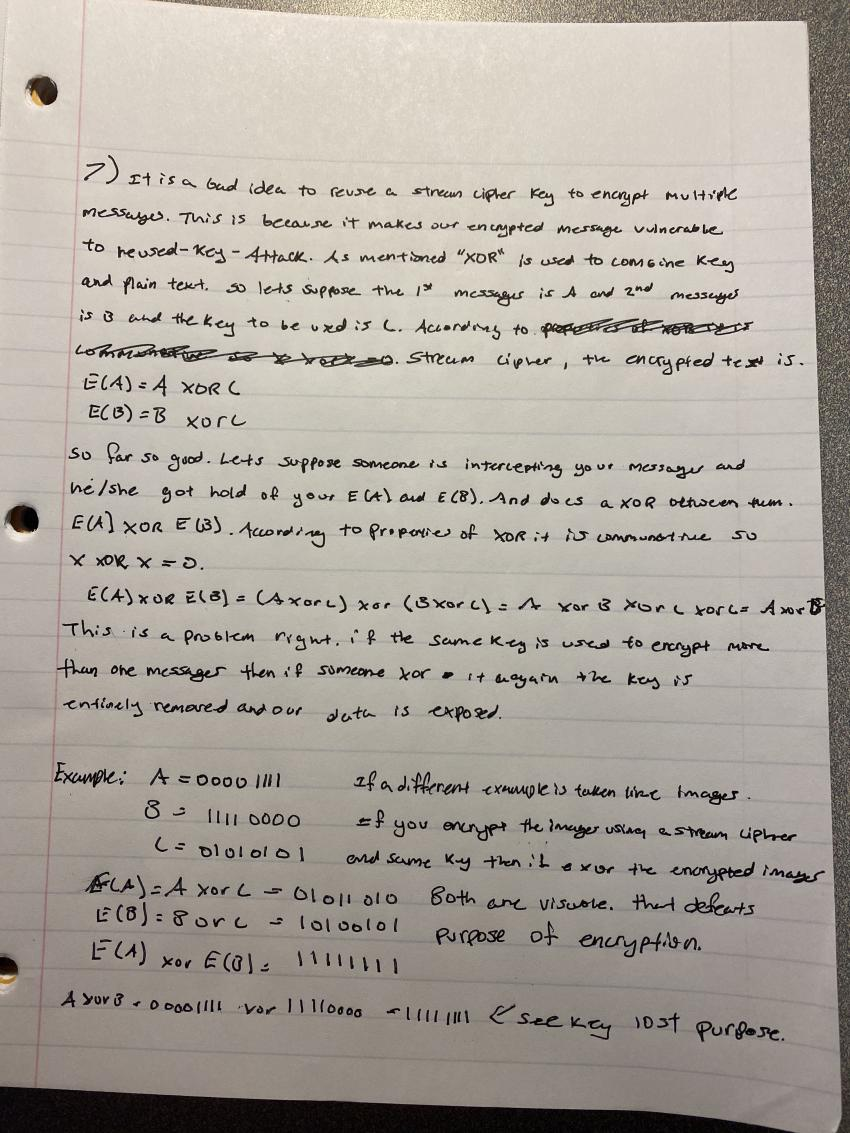 7) It is a bad idea to reuse a stream cipher key to encrypt multiple
messages. This is because it makes our encrypted message vulnerable
to reused-key-Attack. As mentioned "XOR" is used to combine key
and plain text. so lets suppose the 1st messages is A and 2nd messages
is B and the key to be used is C. According to
. Stream cipher, the encrypted text is.
E(A) = A XOR C
E(B) = B xor C
so far so good. Lets suppose someone is intercepting your messages and
he/she got hold of your E(A) and E(B). And does a XOR between them.
E(A) XOR E(B). According to Properties of XOR it is communative so
X XOR X = 0.
E(A) XOR E(B) = (A xor C) xor (B xor C) = A xor B xor C xor C = A xor B
This is a problem right. if the same key is used to encrypt more
than one messages then if someone xor it again the key is
entirely removed and our data is exposed.
Example: A = 00001111 If a different example is taken like images.
B = 11110000 If you encrypt the images using a stream cipher
C = 01010101 and same key then if xor the encrypted images
E(A) = A xor C = 01011010 Both are visible. that defeats
E(B) = B or C = 10100101 purpose of encryption.
E(A) xor E(B) = 11111111
A xor B = 00001111 xor 11110000 = 11111111 { see key lost purpose.